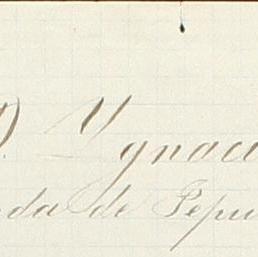 D. Ygnaci
nda de Pepu